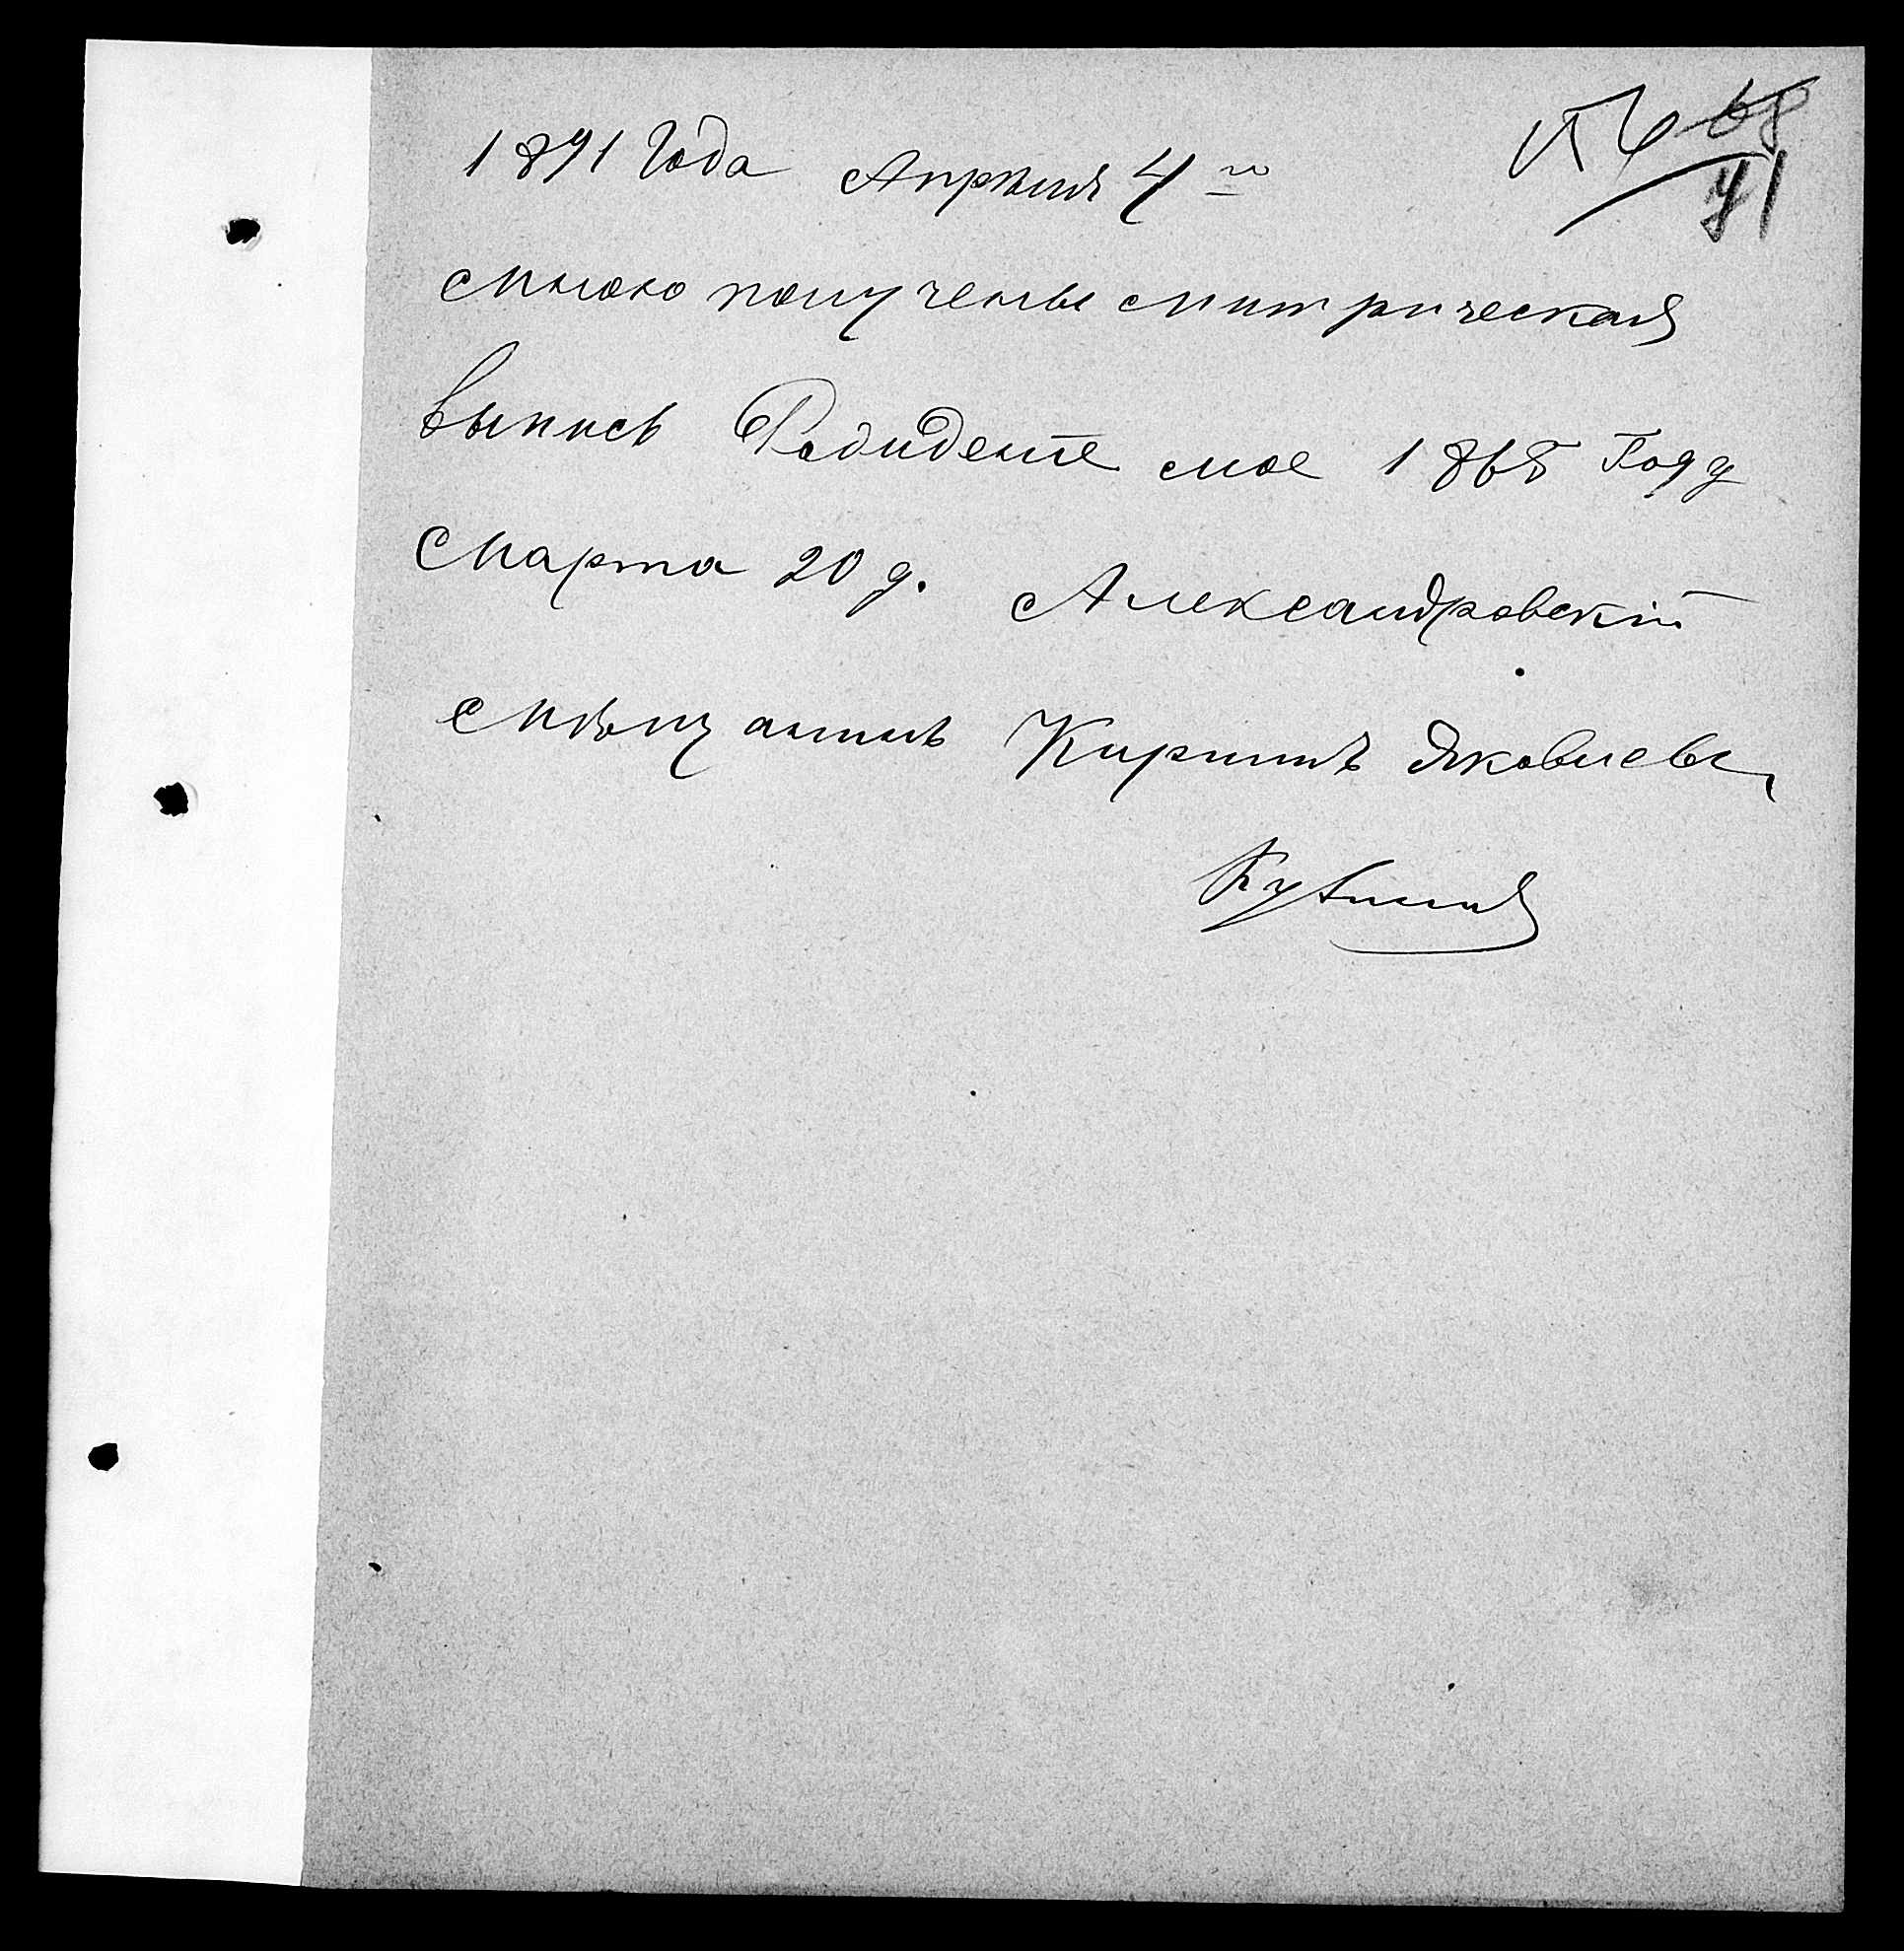 68
71
1891 Года Апрѣля 4 го
Мною получены Митрическая
выпись Родидение мое 1868 Году
Марта 20 д. Александровскій
Мѣщанинъ Кирилъ Яковлевъ